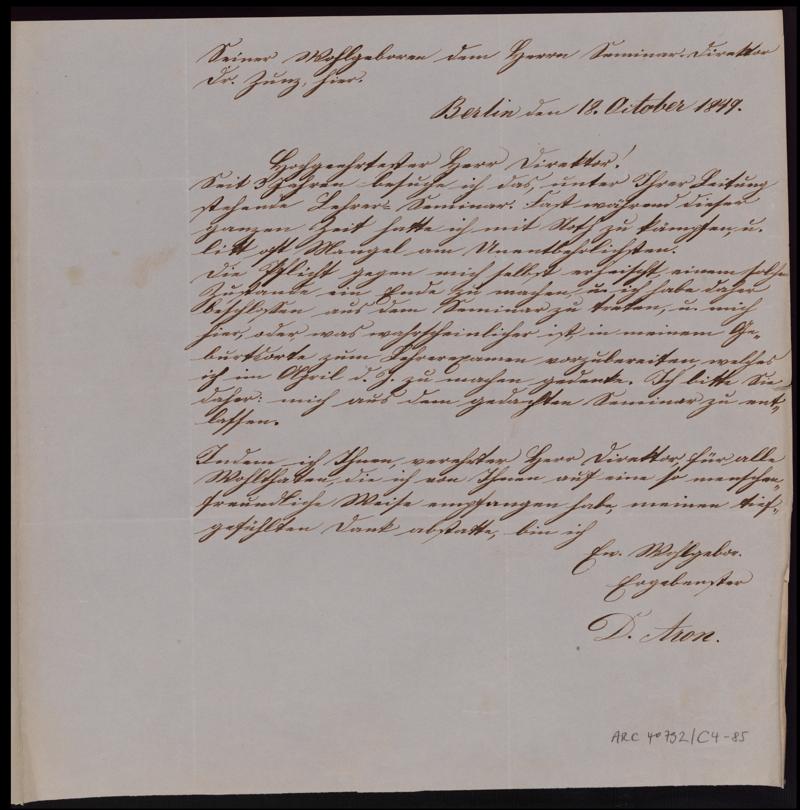 Seiner Wohlgeboren dem Herrn Seminar-Direktor
Dr. Zunz, hier.
Berlin den 18. October 1849.
Hochgeehrtester Herr Direktor!
Seit 3 Jahren besuche ich das, unter Ihrer Leitung
stehende Lehrer-Seminar. Fast während dieser
ganzen Zeit hatte ich mit Noth zu kämpfen, u.
litt oft Mangel am Unentbehrlichsten.
Die Pflicht gegen mich selbst erheischt, einem solchen
Zustande ein Ende zu machen, u. ich habe daher
beschlossen aus dem Seminar zu treten, u. mich
hier, oder was wahrscheinlicher ist, in meinem Ge-
burtsorte zum Lehrerexamen vorzubereiten, welches
ich im April d. J. zu machen gedenke. Ich bitte Sie
daher: mich aus dem gedachten Seminar zu ent-
lassen.
Indem ich Ihnen, verehrter Herr Direktor für alle
Wohlthaten, die ich von Ihnen auf eine so menschen-
freundliche Weise empfangen habe, meinen tief-
gefühlten Dank abstatte, bin ich
Ew. Wohlgebor.
Ergebenster
D. Aron.
ARC 4o 792/C4-85